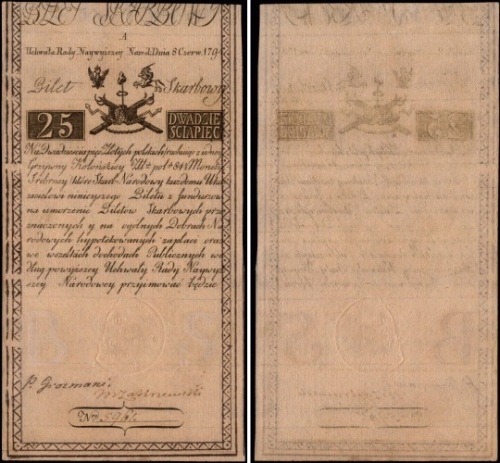 BILET SKARBOWY
A
Uchwała Rady Naywyiszey Narod: Dnia 8 Czerw. 179
Bilet Skarbowy
25
DWADZIE
ŚCIA PIĘĆ
Na Dwadzieścia pięć Złotych polskich rachuiąc z iedney
Grzywny Kolońskiey Zł: pol: 84½ Monety
Srebrney które Skarb Narodowy każdemu Oka
zicielowi ninieyszego Biletu z funduszów
na umorzenie Biletów Skarbowych prze
znaczonych y na ogólnych Dobrach Na
rodowych hypotekowanych zapłaci oraz
we wszelkich dochodach Publicznych we
dług powyższey Uchwały Rady Naywy
szey Narodowey przyimować będzie
P. Grozmani
Nr